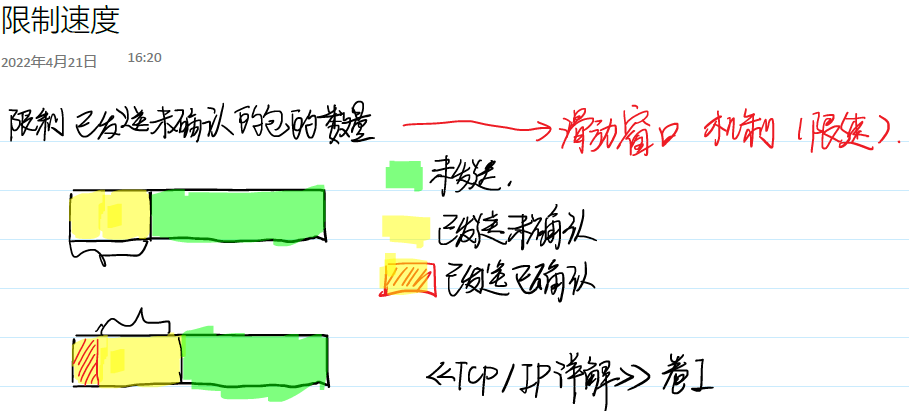 限制速度
2022年4月21日 16:20
限制已发送未确认的包的数量 滑动窗口 机制(限速).
未发送.
已发送未确认
已发送已确认
<<TCP/IP详解>> 卷I